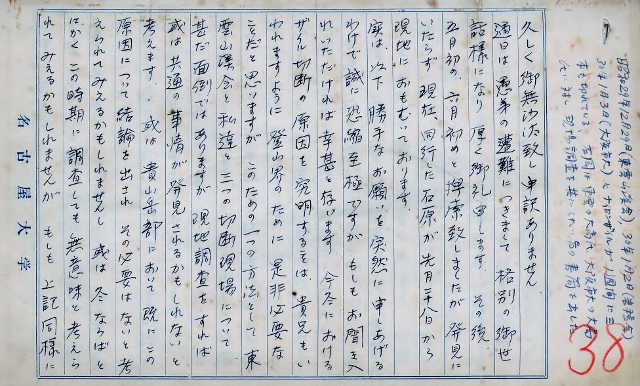 昭和29年12月29日(東雲山溪会)、30年1月2日(岩稜会)
30年1月3日(大阪市大)とナイロンザイルが一週間に三
本も切れている。
氏に対し現場調査を共にしたい旨の書簡を出した
38
久しく御無沙汰致し申訳ありません。
過日は愚弟の遭難につきまして格別の御世
話様になり厚く御礼申します。その後
五月初め、六月初めと捜索致しましたが発見に
いたらず現在、同行した石原が先月二十八日から
現地におもむいております。
実は、以下勝手なお願いを突然に申しあげる
わけで誠に恐縮至極ですがもしもお聞き入
れいただければ幸甚とぞんじます 今冬における
ザイル切断の原因を究明することは、貴兄もい
われますように登山界のために是非必要な
ことだと思いますがこのための一つの方法として東
雲山溪会と私達と三つの切断現場について
甚だ面倒ではありますが現地調査をすれば
或は共通の事情が発見されるかもしれないと
考えます。或は貴山岳部において既にこの
原因について結論を出され その必要はないと考
えられてみえるかもしれませんし 或は冬ならばと
にかくこの時期に調査しても無意味と考えら
れてみえるかもしれませんが もしも上記同様に
名古屋大学